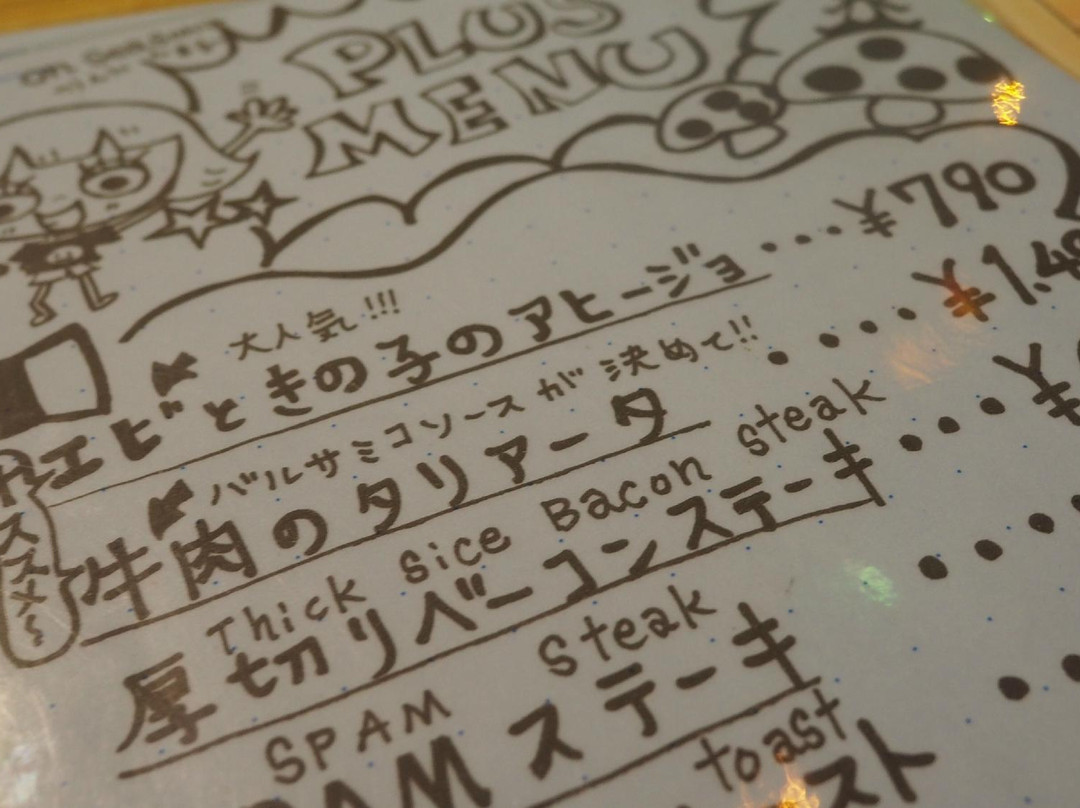 PLUS
MENU
大人気!!!
エビときの子のアヒージョ・・・¥790
バルサミコソースが決めて!!
牛肉のタリアータ・・・・¥1.4
オススメ〜
Thick Sice Bacon steak
厚切りベーコンステーキ・・・¥
SPAM Steak
SPAMステーキ
toast
スト